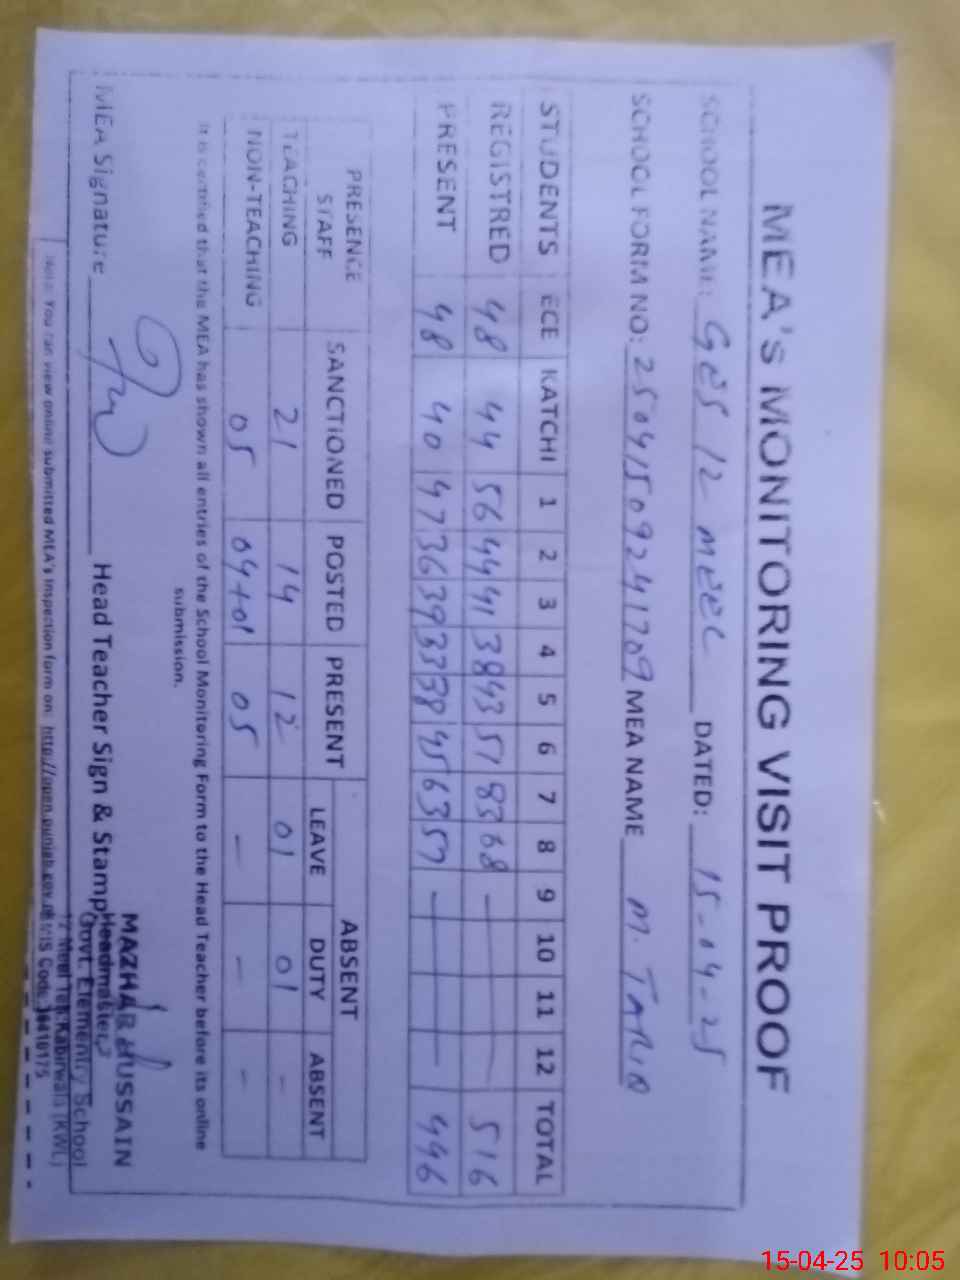 MEA's MONITORING VISIT PROOF
SCHOOL NAME: GES 12 meel DATED: 15-04-25
SCHOOL FORM NO: 25041509241709 MEA NAME M. TARIQ
STUDENTS ECE KATCHI 1 2 3 4 5 6 7 8 9 10 11 12 TOTAL
REGISTRED 48 44 56 44 41 38 43 51 83 68 — 516
PRESENT 48 40 47 36 39 33 38 45 63 57 — 446
PRESENCE STAFF SANCTIONED POSTED PRESENT ABSENT
LEAVE DUTY ABSENT
TEACHING 21 14 12 01 01 -
NON-TEACHING 05 04+01 05 - - -
It is certified that the MEA has shown all entries of the School Monitoring Form to the Head Teacher before its online
submission.
MEA Signature Head Teacher Sign & Stamp
MAZHAR HUSSAIN
Headmaster
Govt. Elementry School
12 Meel Teh. Kabirwala (KWL)
Note: You can view online submitted MEA's Inspection form on: http://open.punjab.gov.pk
15-04-25 10:05